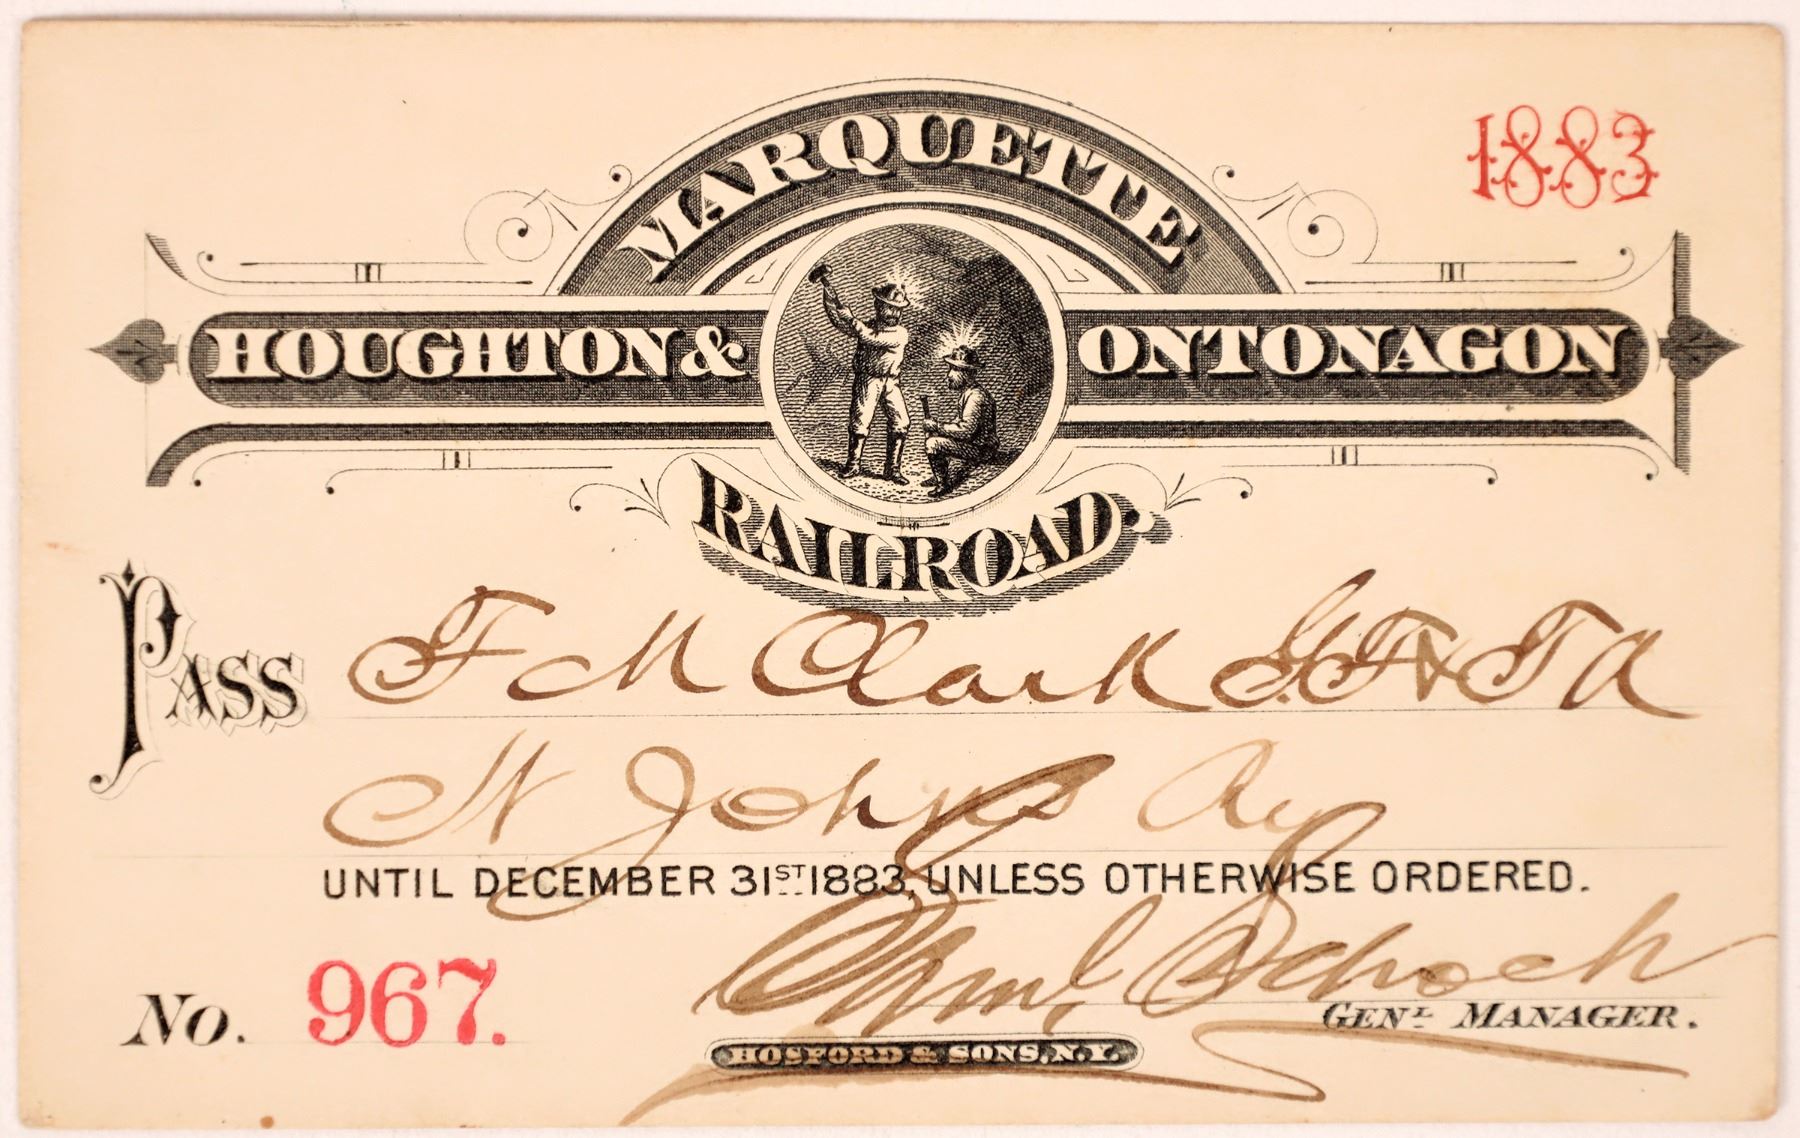 1883
MARQUETTE
HOUGHTON & ONTONAGON
RAILROAD.
PASS F M Clark G.F.& T A
St Johns Ry
UNTIL DECEMBER 31ST 1883, UNLESS OTHERWISE ORDERED.
No. 967. Schoch
GENL MANAGER.
HOSFORD & SONS, N.Y.